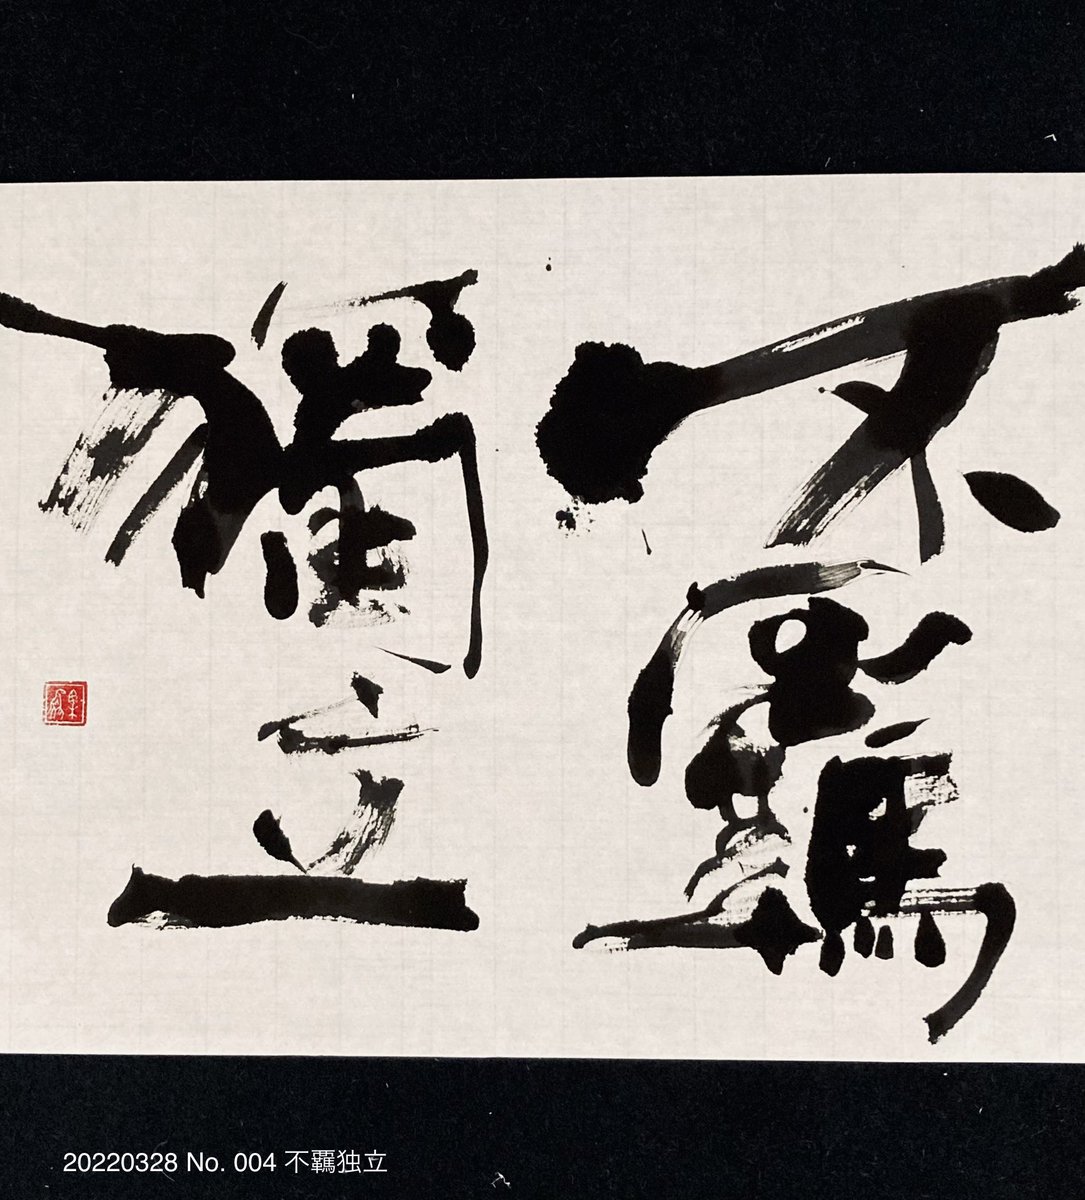 不羈
獨立
20220328 No. 004 不羈独立